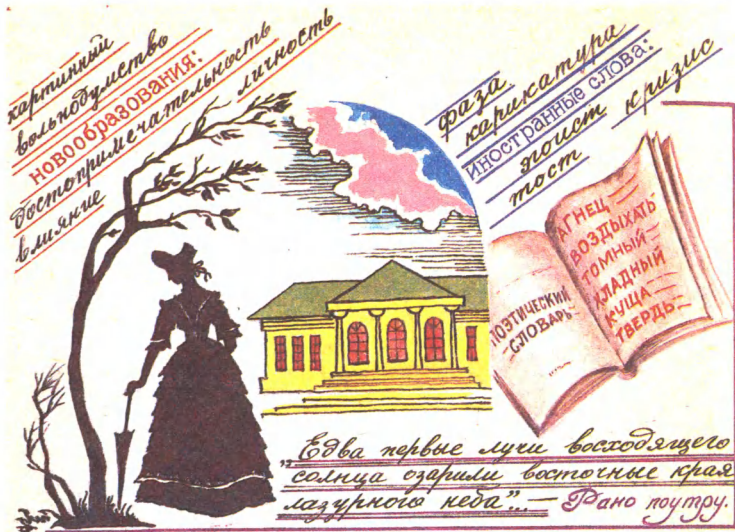 картинный
вольнодумство
новообразования:
достопримечательность
влияние личность
фаза
карикатура
иностранные слова:
эгоист кризис
тост
ПОЭТИЧЕСКИЙ
СЛОВАРЬ
АГНЕЦ
ВОЗДЫХАТЬ
ТОМНЫЙ
ХЛАДНЫЙ
КУЩА
ТВЕРДЬ
„Едва первые лучи восходящего
солнца озарили восточные края
лазурного неба” — Рано поутру.